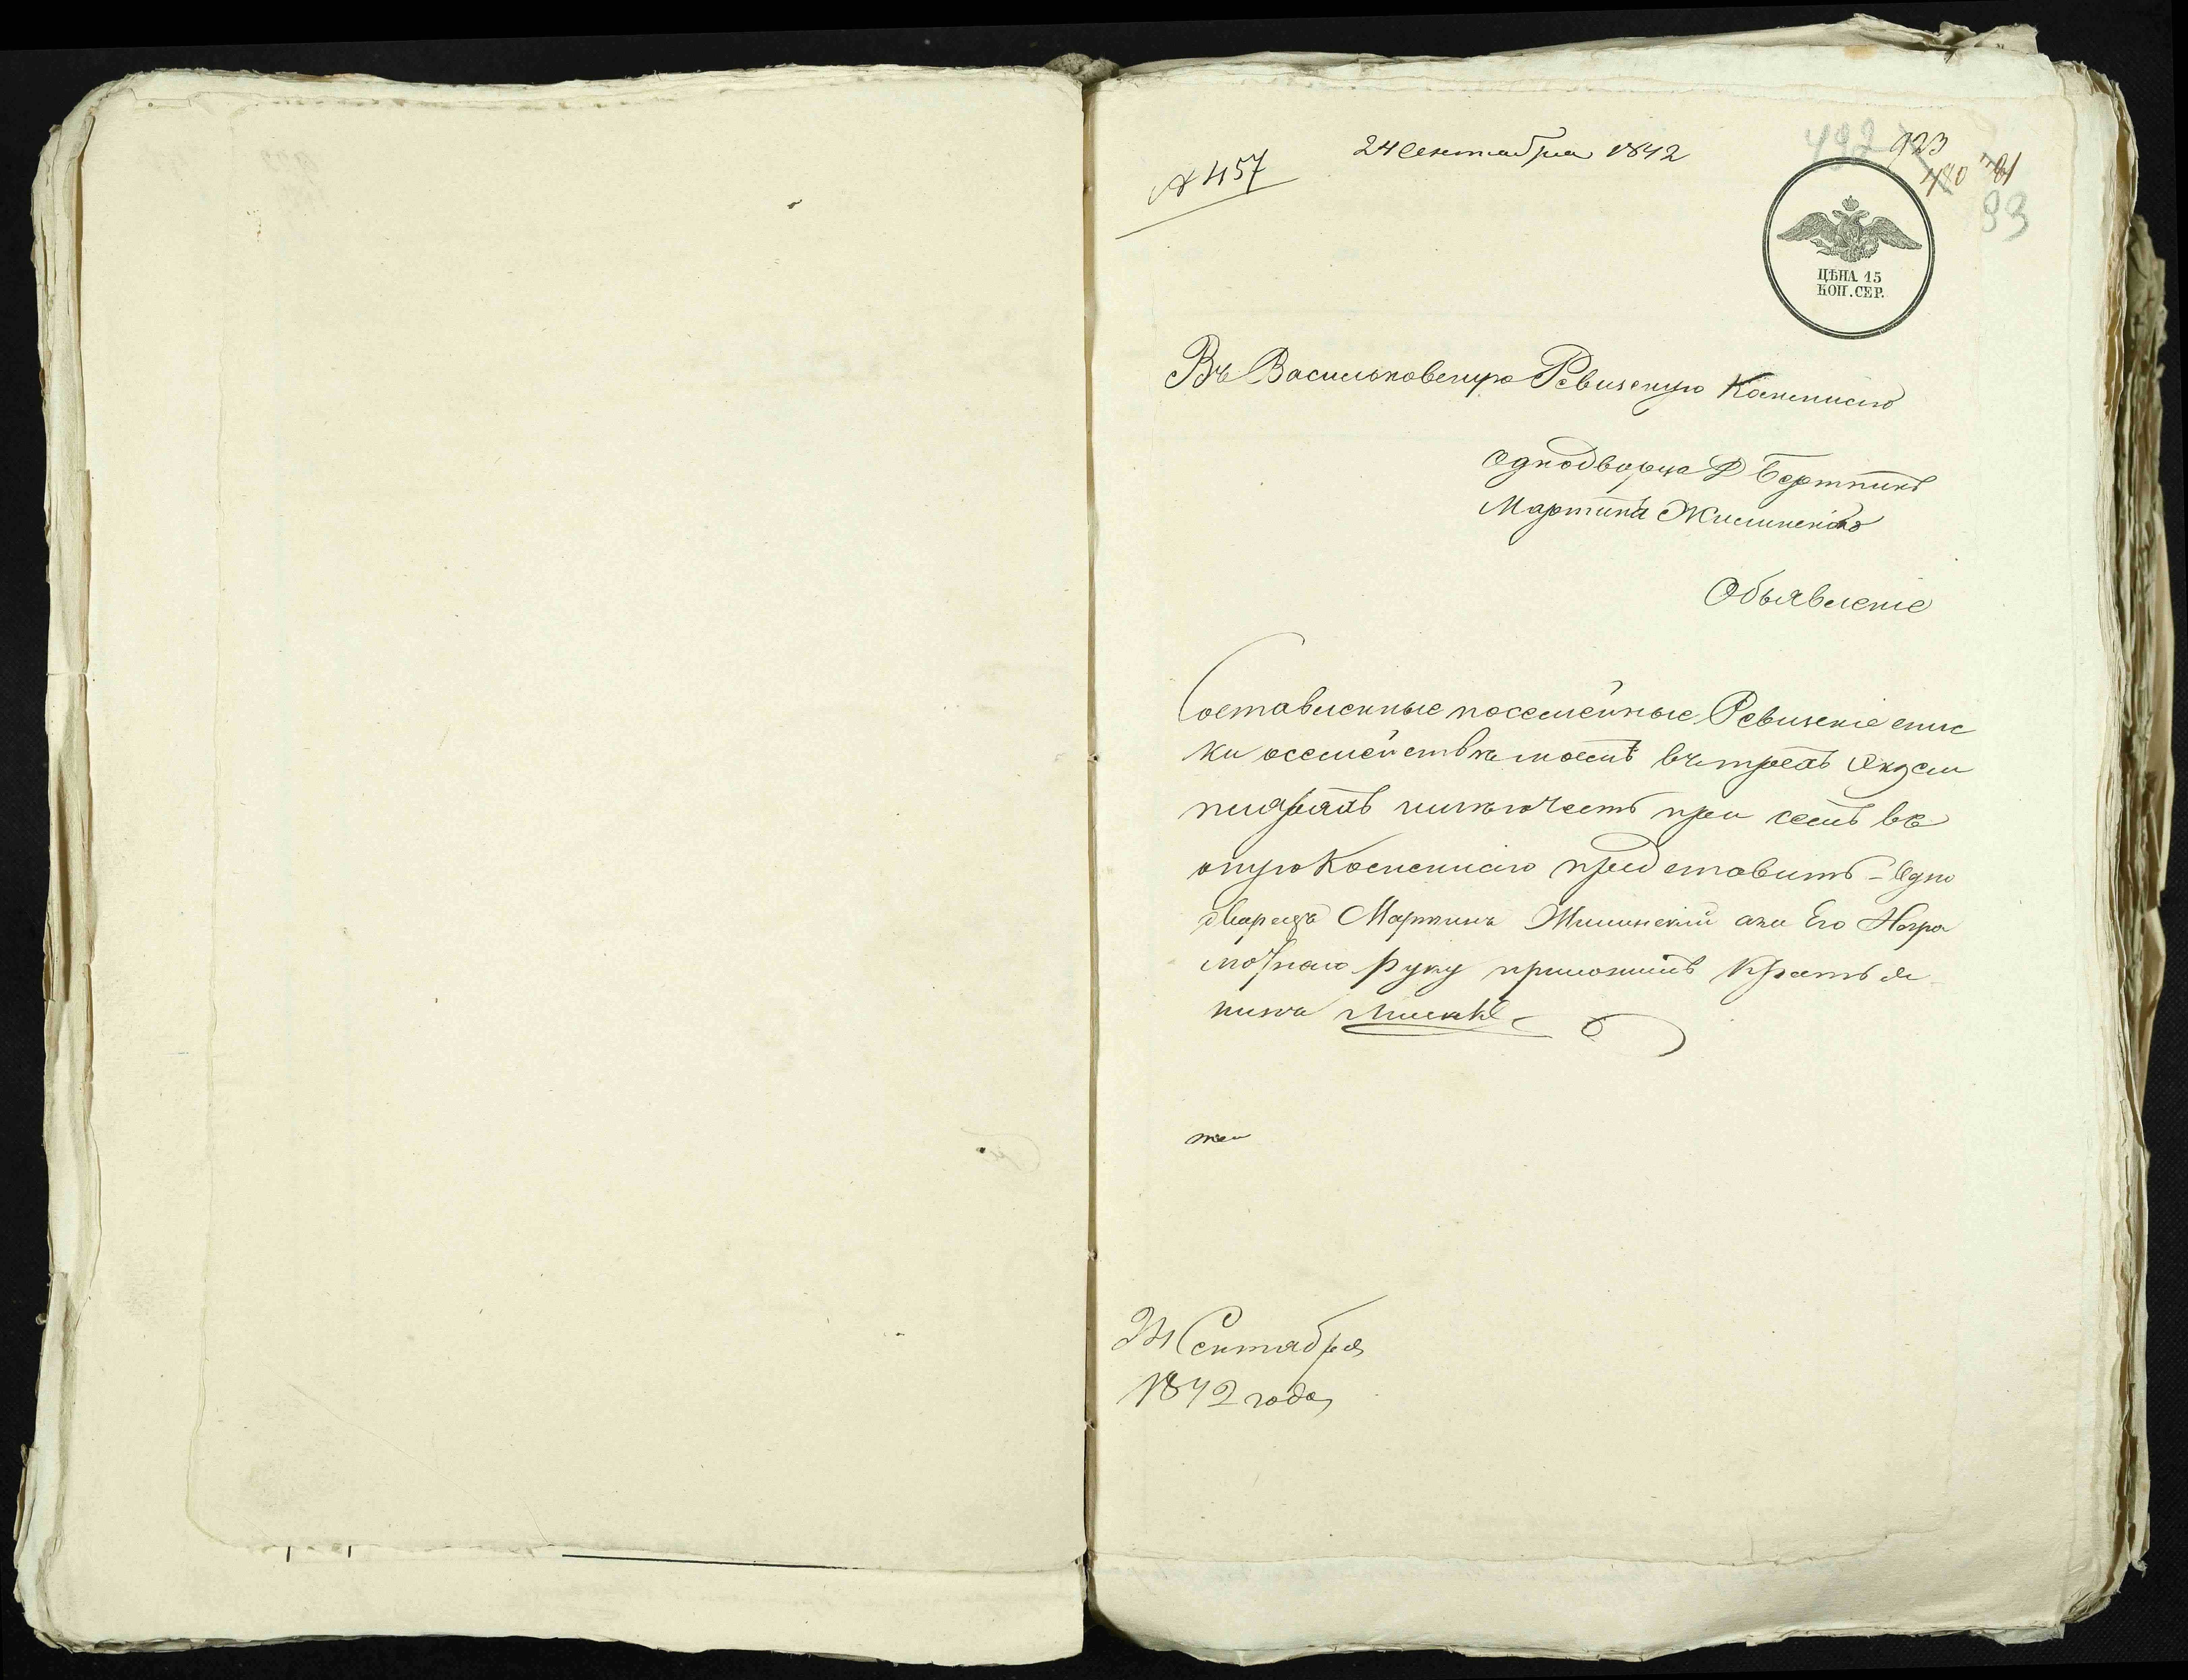 24 Сентабра 1842
№ 457
923
480
481
93
492
ЦѢНА 15
КОП. СЕР.
Въ Васильковскую Ревизскую Коммисію
Однодворца
Мартина Жилинскаго
Объявленіе
Составленные посемейные Ревизскіе спис
ки осемействе моемъ втрехъ Екзем
плярахъ имею честь при семъ в
оную Коммисію представить - Одно
дворецъ Мартинъ Жилинскій ана Его Негра
мотнаго руку приложилъ
24 Сентября
1842 года